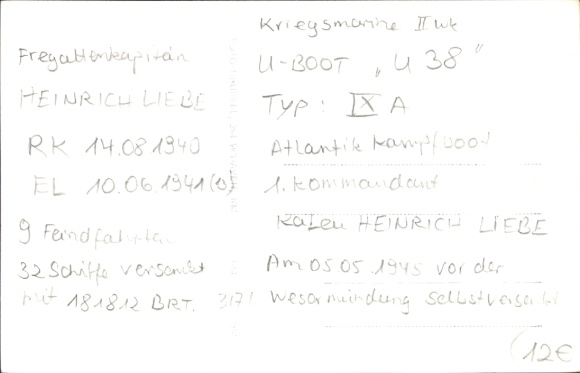 Fregattenkapitän
HEINRICH LIEBE
RK 14.08.1940
EL 10.06.1941 (13)
9 Feindfahrten
32 Schiffe versenkt
mit 181812 BRT.
317!
Kriegsmarine II Wk
U-BOOT „U 38"
Typ: IX A
Atlantik Kampfboot
1. Kommandant
HEINRICH LIEBE
Am 05.05.1945 vor der
Wesermündung selbstversenkt
12€